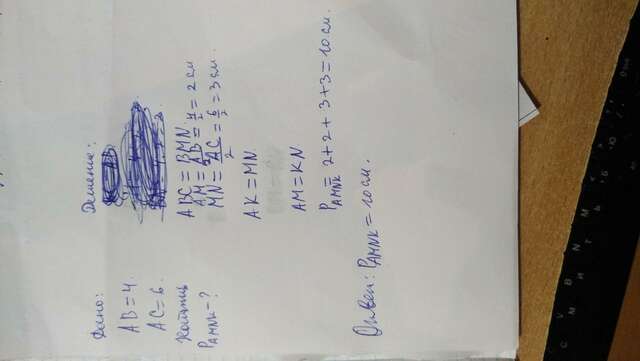 Дано:
AB=4.
AC=6.
Найти
P_AMNK=?
Решение:
ABC = BMN.
AM = AB/2 = 4/2 = 2 см
MN = AC/2 = 6/2 = 3 см.
AK = MN.
AM = KN
P_AMNK = 2+2+3+3=10 см.
Ответ: P_AMNK = 10 см.